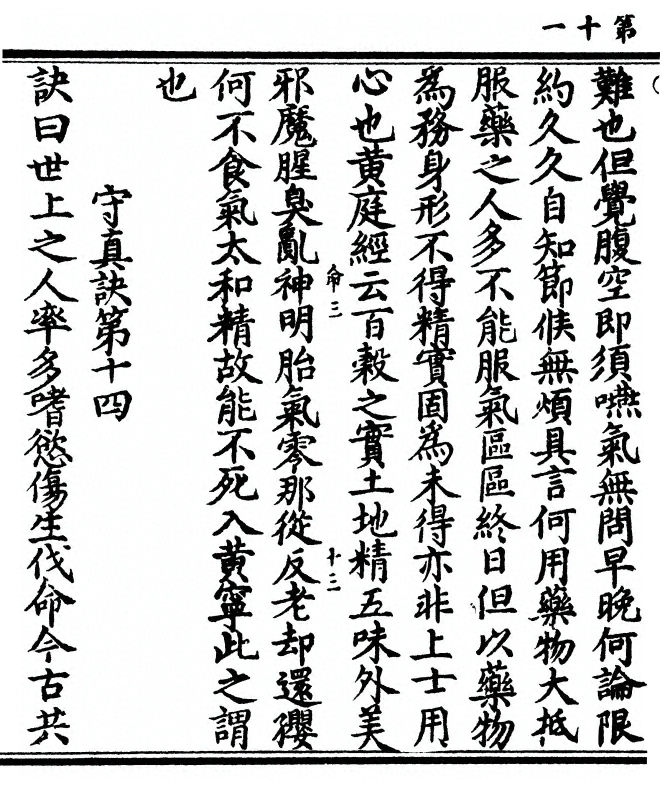 第十一
難也但覺腹空即須嚥氣無問早晚何論限
約久久自知節候無煩具言何用藥物大抵
服藥之人多不能服氣區區終日但以藥物
爲務身形不得精實固爲未得亦非上士用
心也黄庭經云百穀之實土地精五味外美
命三
十二
邪魔腥臭亂神明胎氣零那從反老却還孾
何不食氣太和精故能不死入黄寧此之謂
也
守真訣第十四
訣曰世上之人率多嗜慾傷生伐命今古共